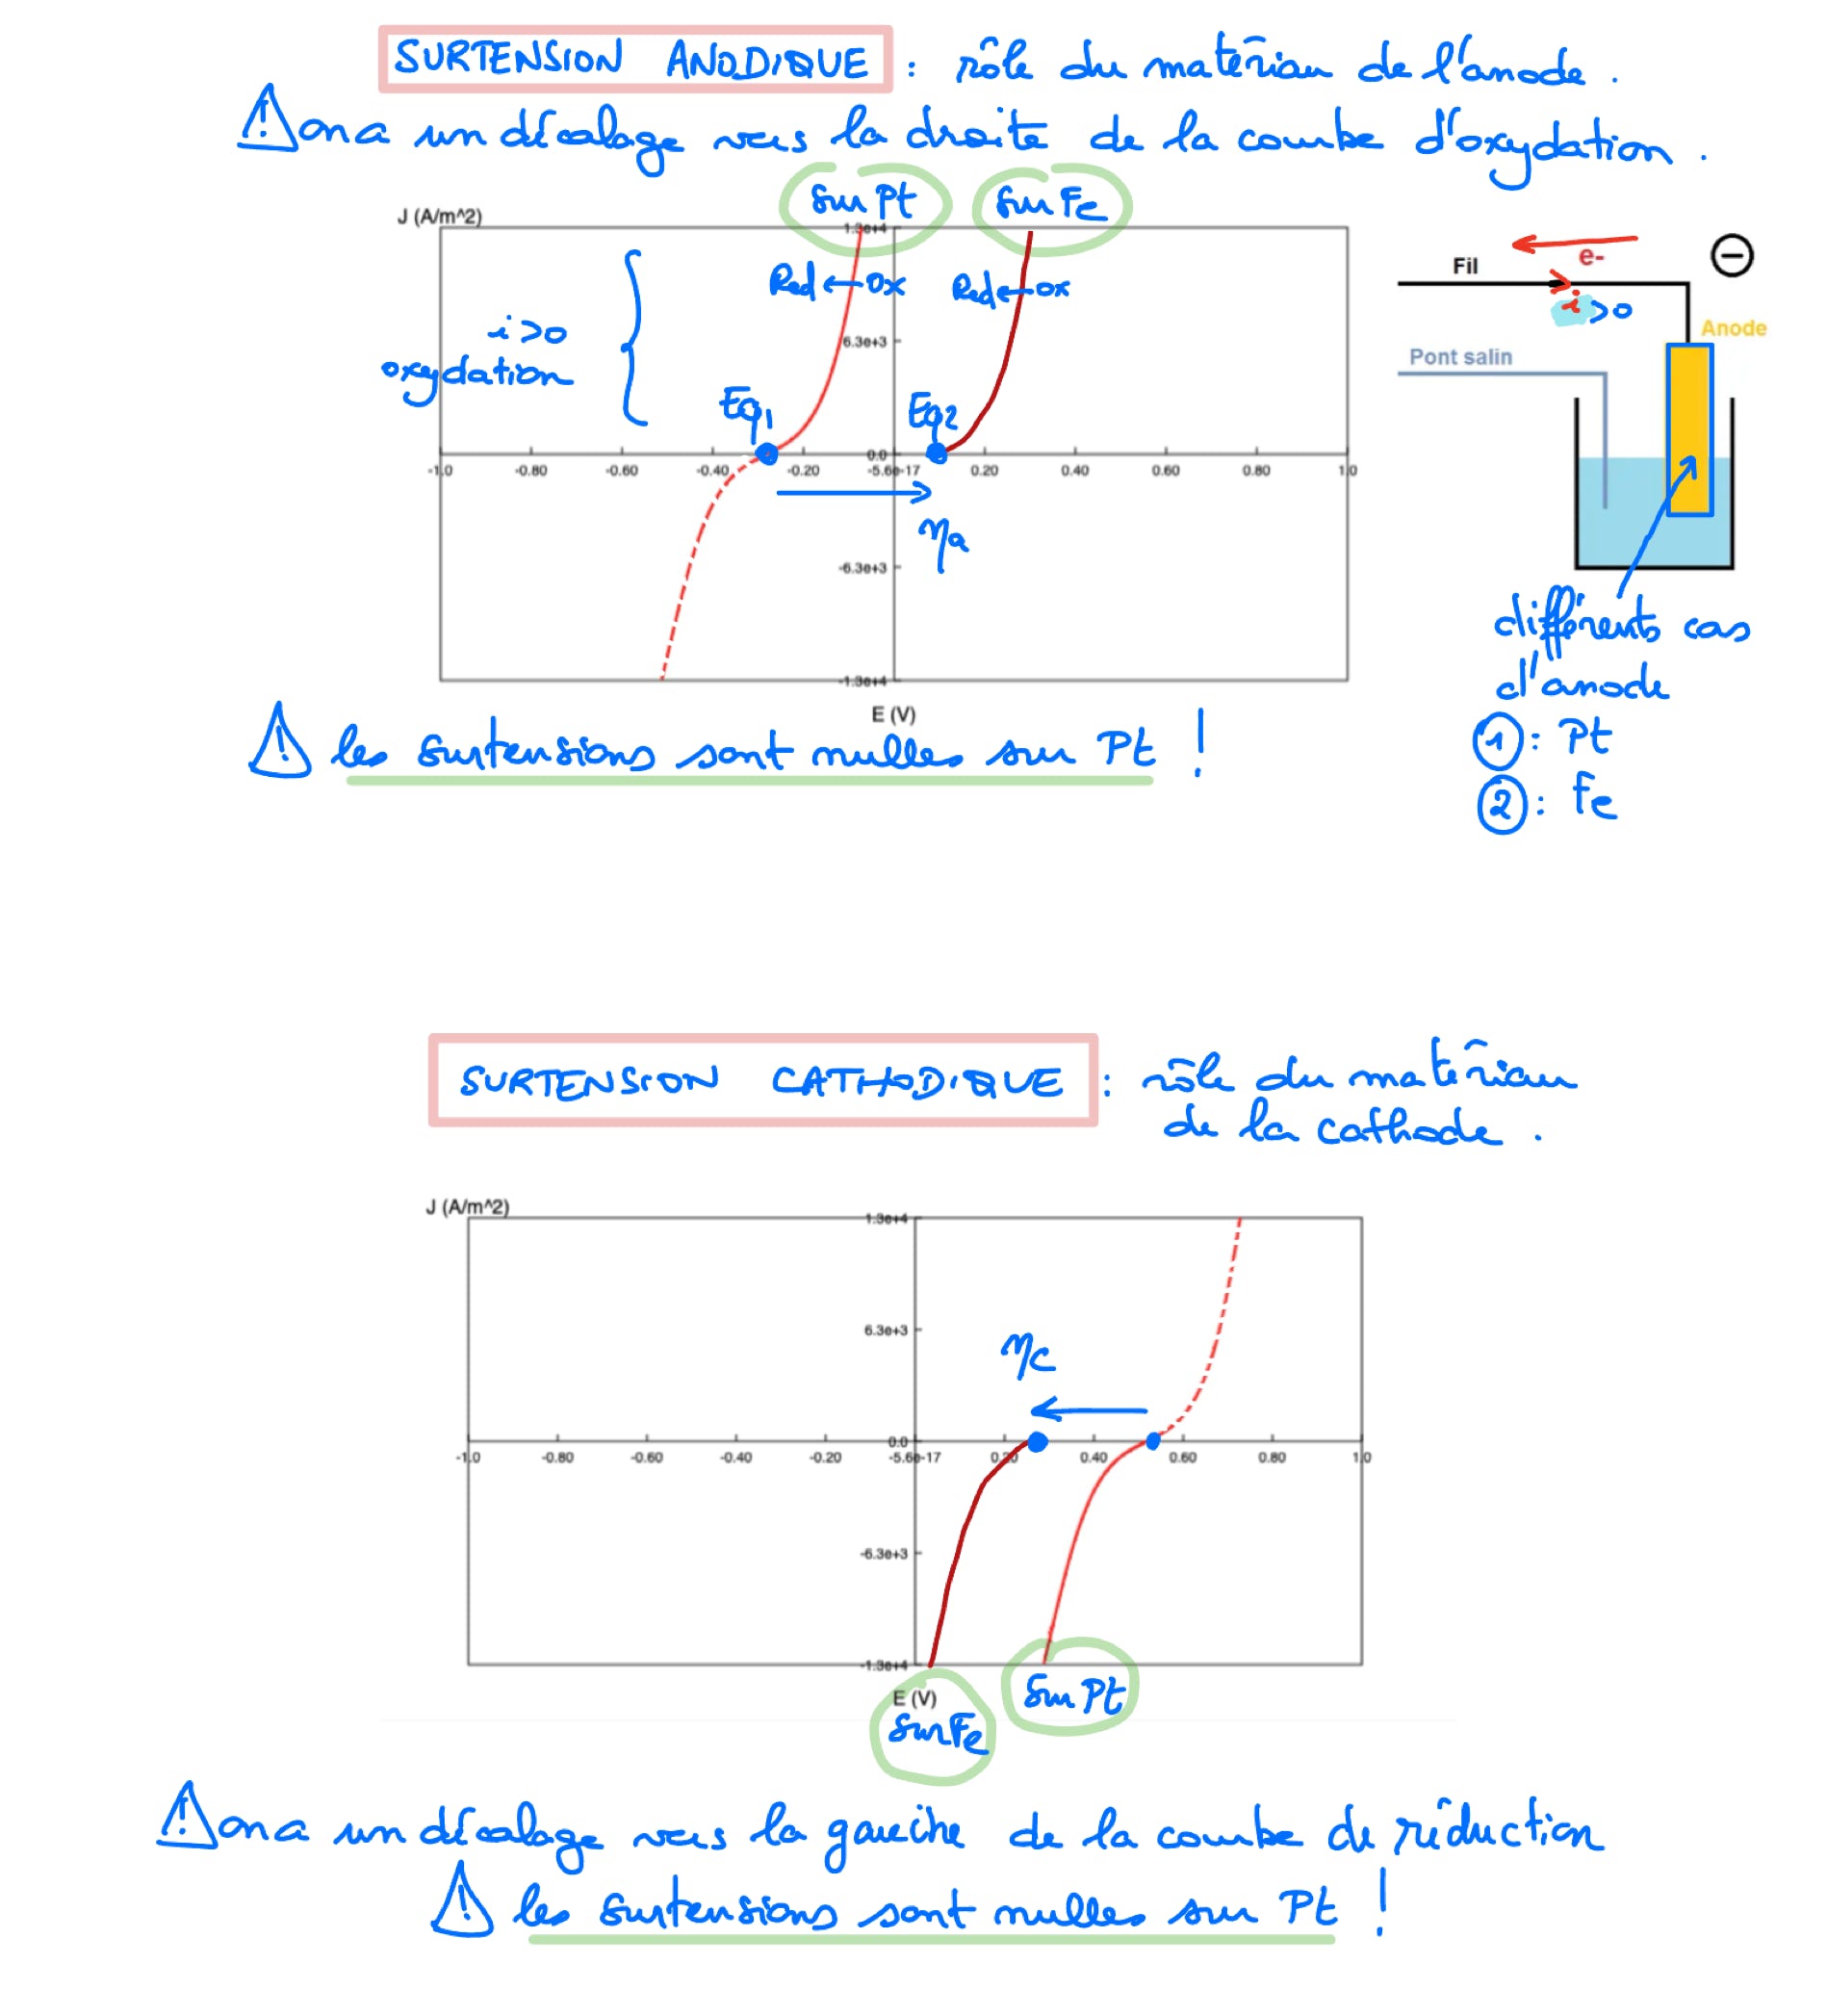 SURTENSION ANODIQUE : rôle du matériau de l'anode.
⚠ on a un décalage vers la droite de la courbe d'oxydation.
sur Pt
sur Fe
J (A/m^2)
1.3e+4
Red ← Ox
Red ← ox
i>0
oxydation
6.3e+3
Eq1
Eq2
0.0
-1.0 -0.80 -0.60 -0.40 -0.20 -5.6e-17 0.20 0.40 0.60 0.80 1.0
ηa
-6.3e+3
-1.3e+4
E (V)
e-
Fil
i>0
⊖
Anode
Pont salin
différents cas
d'anode
①: Pt
②: Fe
⚠ les surtensions sont nulles sur Pt !
SURTENSION CATHODIQUE : rôle du matériau
de la cathode.
J (A/m^2)
1.3e+4
6.3e+3
ηc
0.0
-1.0 -0.80 -0.60 -0.40 -0.20 -5.6e-17 0.20 0.40 0.60 0.80 1.0
-6.3e+3
-1.3e+4
E (V)
sur Pt
sur Fe
⚠ on a un décalage vers la gauche de la courbe de réduction
⚠ les surtensions sont nulles sur Pt !